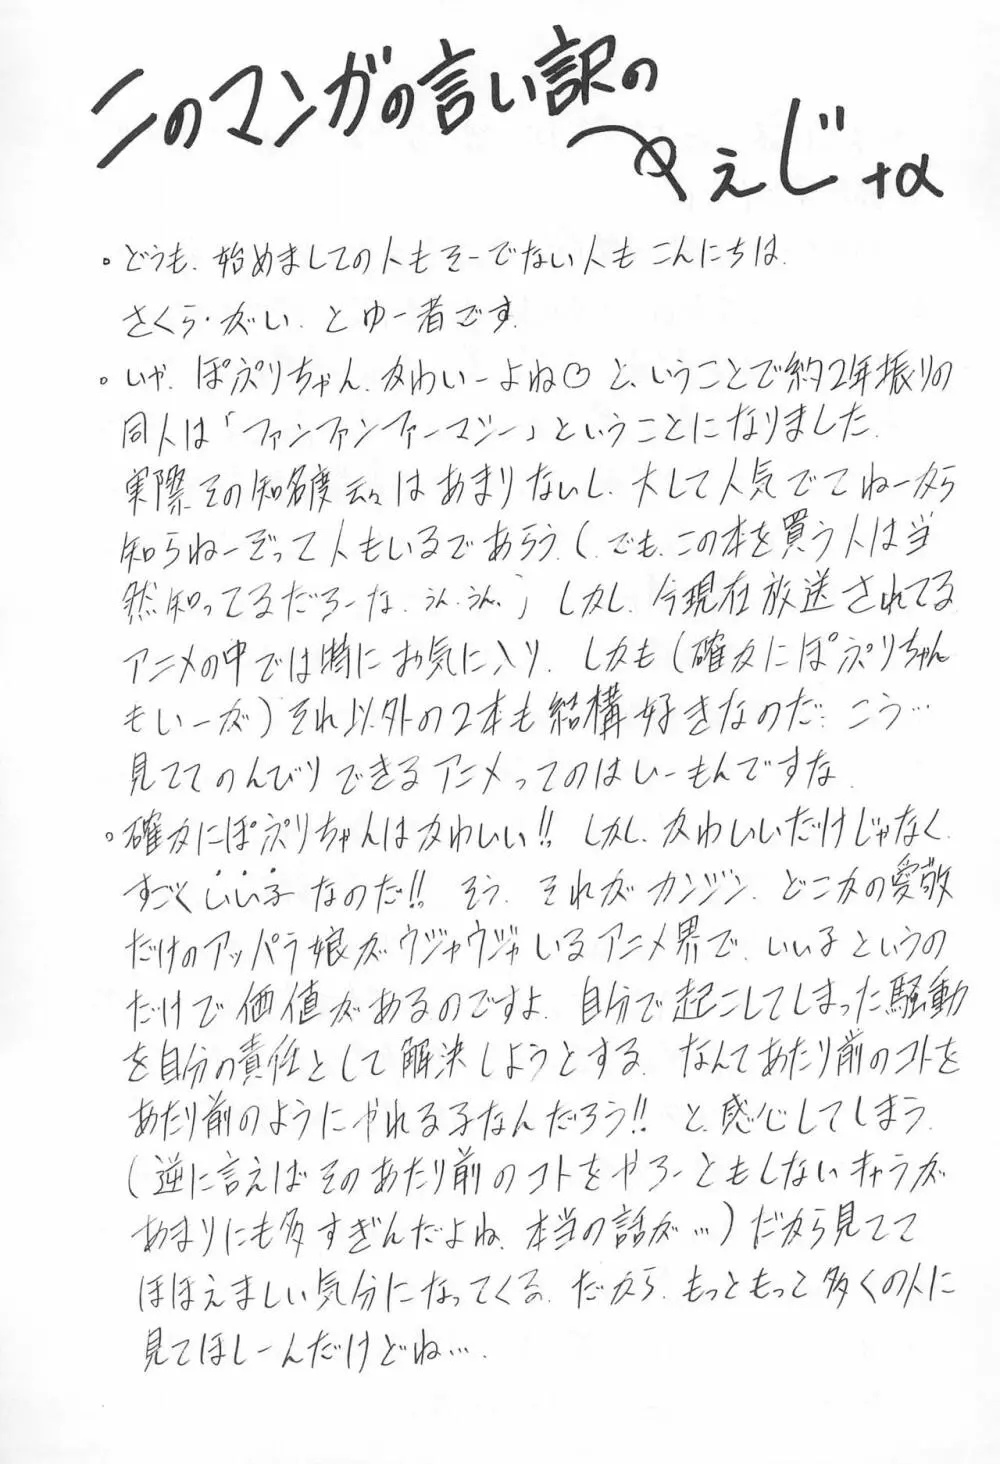 このマンガの言い訳の
ぺぇじ+α
。どうも、始めましての人もそーでない人もこんにちは。
さくら・がい、とゆー者です。
。いや、ぽぷりちゃん、かわいーよね♡と、いうことで約2年振りの
同人は「ファンファンファーマシー」ということになりました。
実際その知名度云々はあまりないし、大して人気でてねーから
知らねーぞって人もいるであらう、(でも、この本を買う人は当
然知ってるだろーな、うん、うん、)しかし、今現在放送されてる
アニメの中では特にお気に入り、しかも(確かにぽぷりちゃん
もいーが)それ以外の2本も結構好きなのだ。こう…
見ててのんびりできるアニメってのはいーもんですな
。確かにぽぷりちゃんはかわいい!!しかし、かわいいだけじゃなく、
すごくいい子なのだ!!そう、それがカンジン、どこかの愛敬
だけのアッパラ娘がウジャウジャいるアニメ界で、いい子というの
だけで価値があるのですよ、自分で起こしてしまった騒動
を自分の責任として解決しようとする、なんてあたり前のコトを
あたり前のようにやれる子なんだろう!!と、感心してしまう。
(逆に言えばそのあたり前のコトをやろーともしないキャラが
あまりにも多すぎんだよね、本当の話が…)だから見てて
ほほえましい気分になってくる、だから、もっともっと多くの人に
見てほしーんだけどね…。